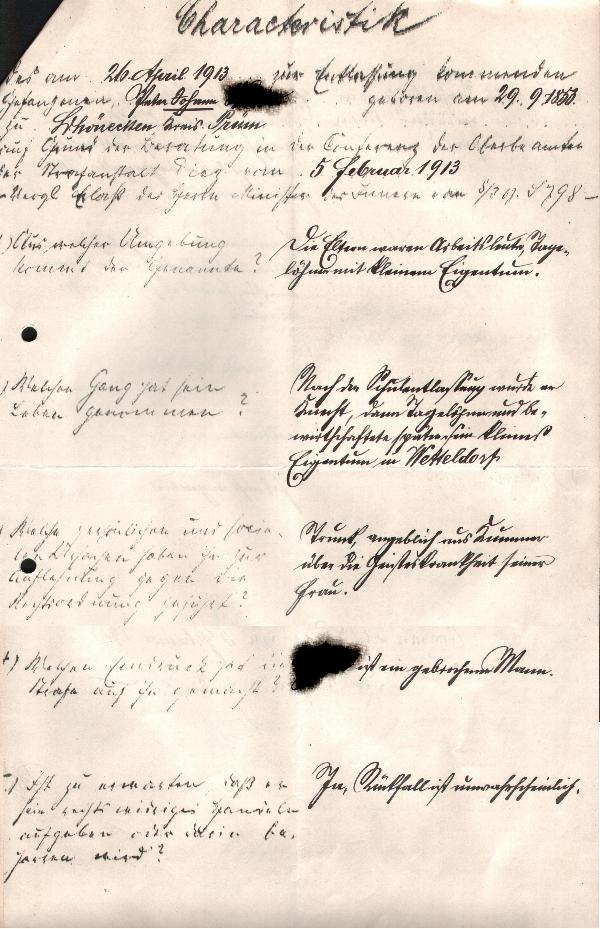 Characteristik
des am 26. April 1913 zur Entlassung kommenden
Gefangenen, Peter Johann geboren am 29. 9. 1858.
zu Schönecken Kreis Prüm
auf Grund der Beratung in der Conferenz der Oberbeamten
der Strafanstalt Diez vom 5 Februar 1913
Vergl Erlaß des Herrn Minister des Innern vom S 798 -
1) Aus welcher Umgebung
kommt der Genannte?
Die Eltern waren Arbeitsleute, Tage-
löhner mit kleinem Eigentum.
) Welchen Gang hat sein
Leben genommen?
Nach der Schulentlassung wurde er
Knecht, dann Tagelöhner und be-
wirtschaftete später sein kleines
Eigentum in Wetteldorf
Welche persönlichen und socia-
len Ursachen haben ihn zur
Auflehnung gegen die
Rechtsordnung geführt?
Trunk, angeblich aus Kummer
über die Geisteskrankheit seiner
Frau.
4) Welchen Eindruck hat die
Strafe auf ihn gemacht?
ist ein gebrochener Mann.
) Ist zu erwarten, daß er
sein rechtswidriges Handeln
aufgeben oder darin be-
harren wird?
Ja, Rückfall ist unwahrscheinlich.